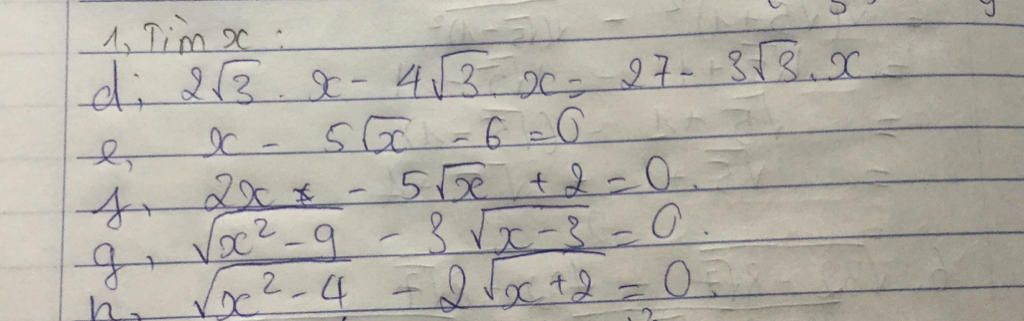 1, Tìm x :
d, 2√3 . x - 4√3 . x = 27 - 3√3 . x
e, x - 5√x - 6 = 0
f, 2x - 5√x + 2 = 0.
g, √x² - 9 - 3√x - 3 = 0.
h, √x² - 4 - 2√x + 2 = 0.